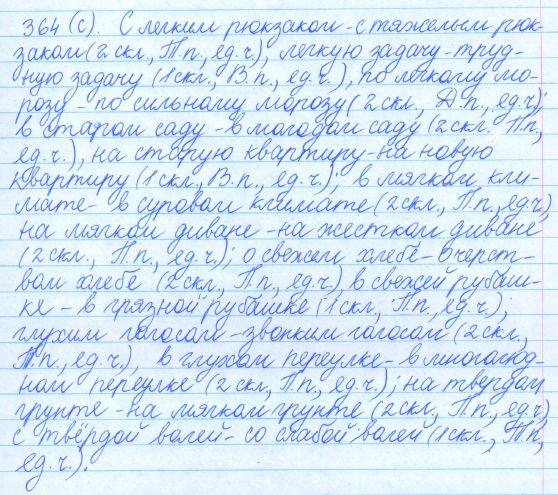 364 (с). С легким рюкзаком - с тяжелым рюк-
заком (2 скл., Т.п., ед.ч.), легкую задачу - труд-
ную задачу (1 скл., В.п., ед.ч.), по легкому мо-
розу - по сильному морозу (2 скл., Д.п., ед.ч.);
в старом саду - в молодом саду (2 скл. П.п.,
ед.ч.), на старую квартиру - на новую
квартиру (1 скл., В.п., ед.ч.); в мягком кли-
мате - в суровом климате (2 скл., П.п., ед.ч.)
на мягком диване - на жестком диване
(2 скл., П.п., ед.ч.); о свежем хлебе - о черст-
вом хлебе (2 скл., П.п., ед.ч.), в свежей рубаш-
ке - в грязной рубашке (1 скл., П.п., ед.ч.);
глухим голосом - звонким голосом (2 скл.,
Т.п., ед.ч.), в глухом переулке - в многолюд-
ном переулке (2 скл., П.п., ед.ч.); на твердом
грунте - на мягком грунте (2 скл., П.п., ед.ч.)
с твёрдой волей - со слабой волей (1 скл., Т.п.,
ед.ч.).